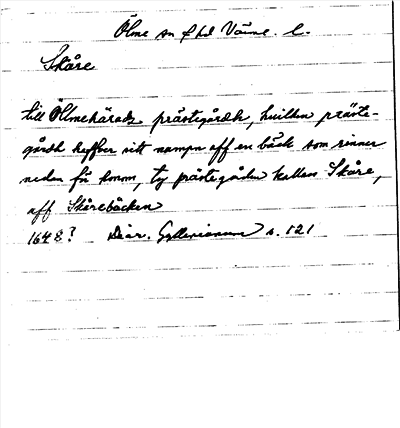 Ölme sn f hd Värml. l.
Skåre
till Ölmehäradz prästegårdh, huilken präste-
gårdh haffver sitt nampn aff en bäck som rinner
neden för honom, ty prästegården kallas Skåre,
aff Skårebäcken
1648? Diar. Gyllenianum s. 121